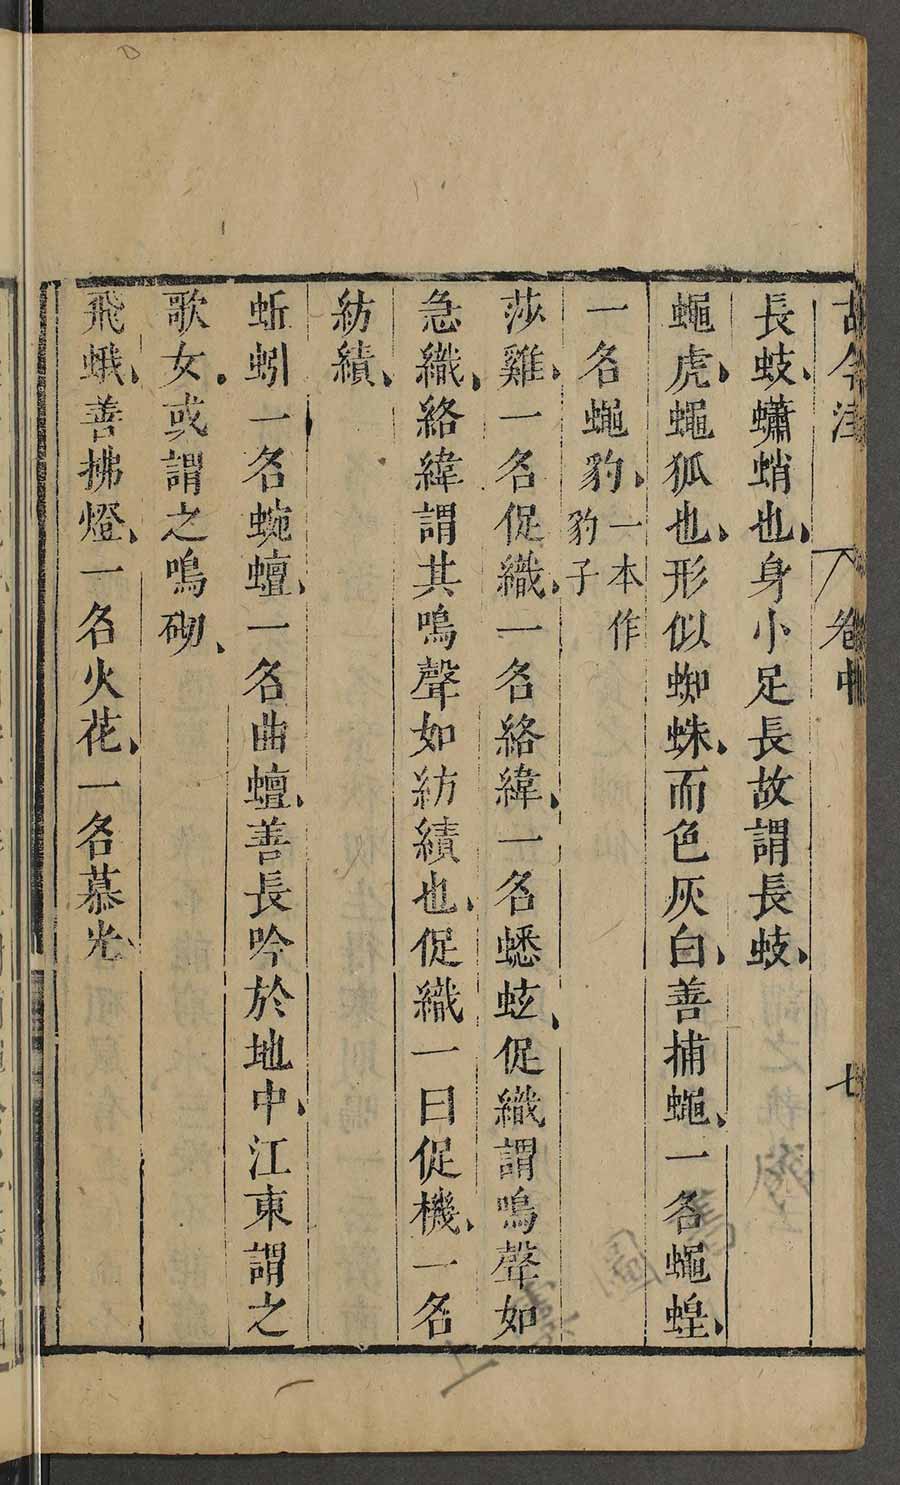 古今注 卷中 七
長蚑蠨蛸也身小足長故謂長蚑
蠅虎蠅狐也形似蜘蛛而色灰白善捕蠅一名蠅蝗
一名蠅豹一本作豹子
莎雞一名促織一名絡緯一名蟋蟀促織謂鳴聲如
急織絡緯謂其鳴聲如紡績也促織一曰促機一名
紡績
蚯蚓一名蜿蟺一名曲蟺善長吟於地中江東謂之
歌女或謂之鳴砌
飛蛾善拂燈一名火花一名慕光